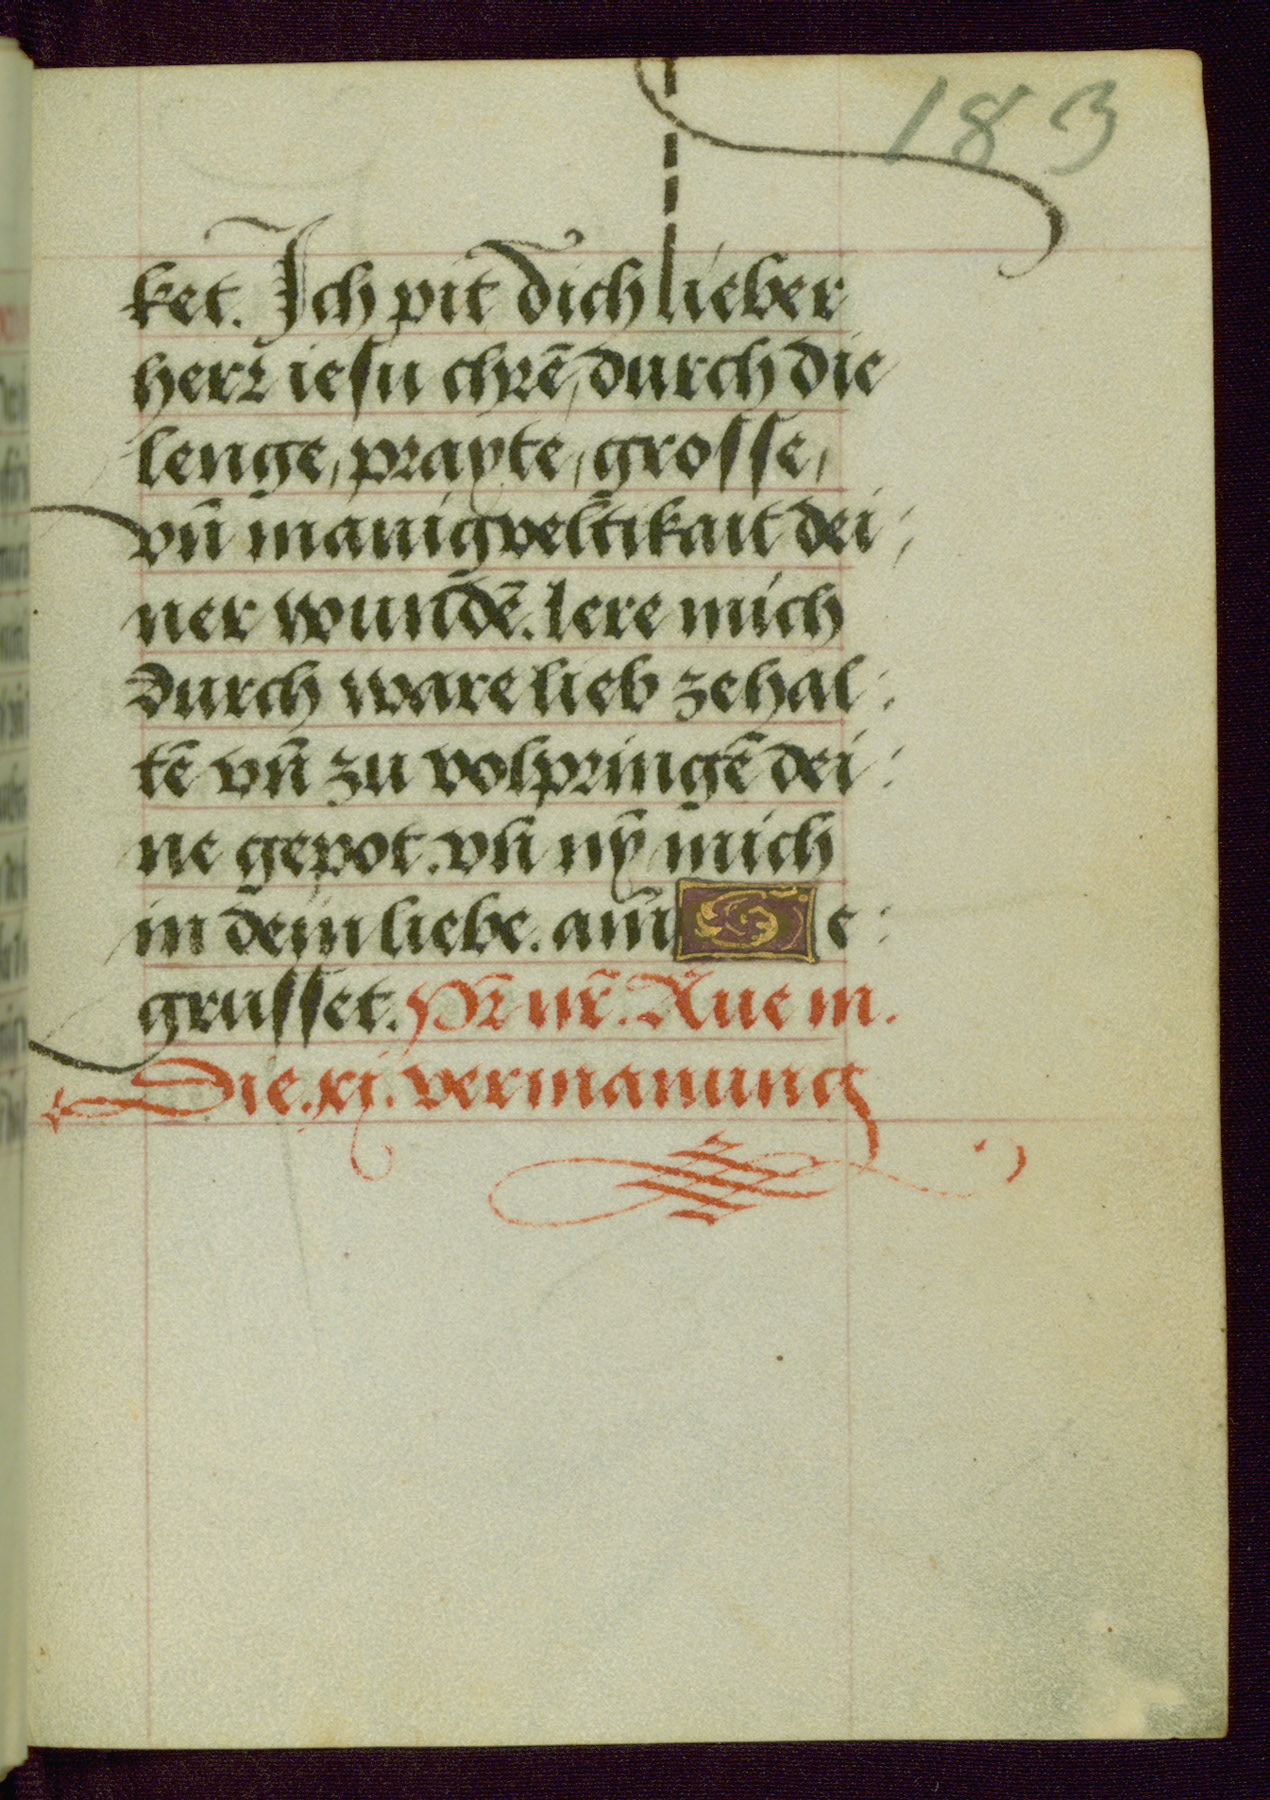 183
ket. Ich pit dich lieber
herr iesu chrē, durch die
lenge, prayte, grosse,
vn̄ manigveltikait dei
ner wundē. lere mich
durch ware lieb zehal:
tē vn̄ zu volpringē dei:
ne gepot. vn̄ nȳ mich
in dein liebe. am̄ G e:
grusset. Pr̄ nr̄. Aue m.
Die .xj. vermanung